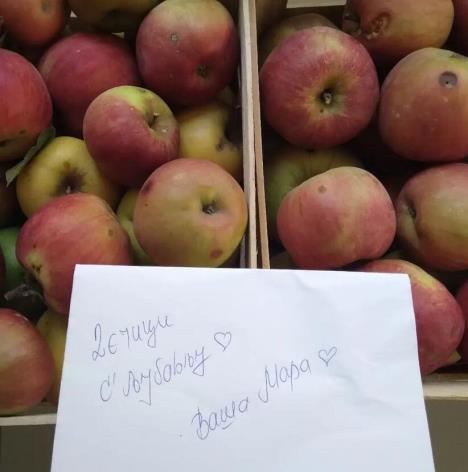 Дечици
с' љубављу ♡
Ваша Мара ♡